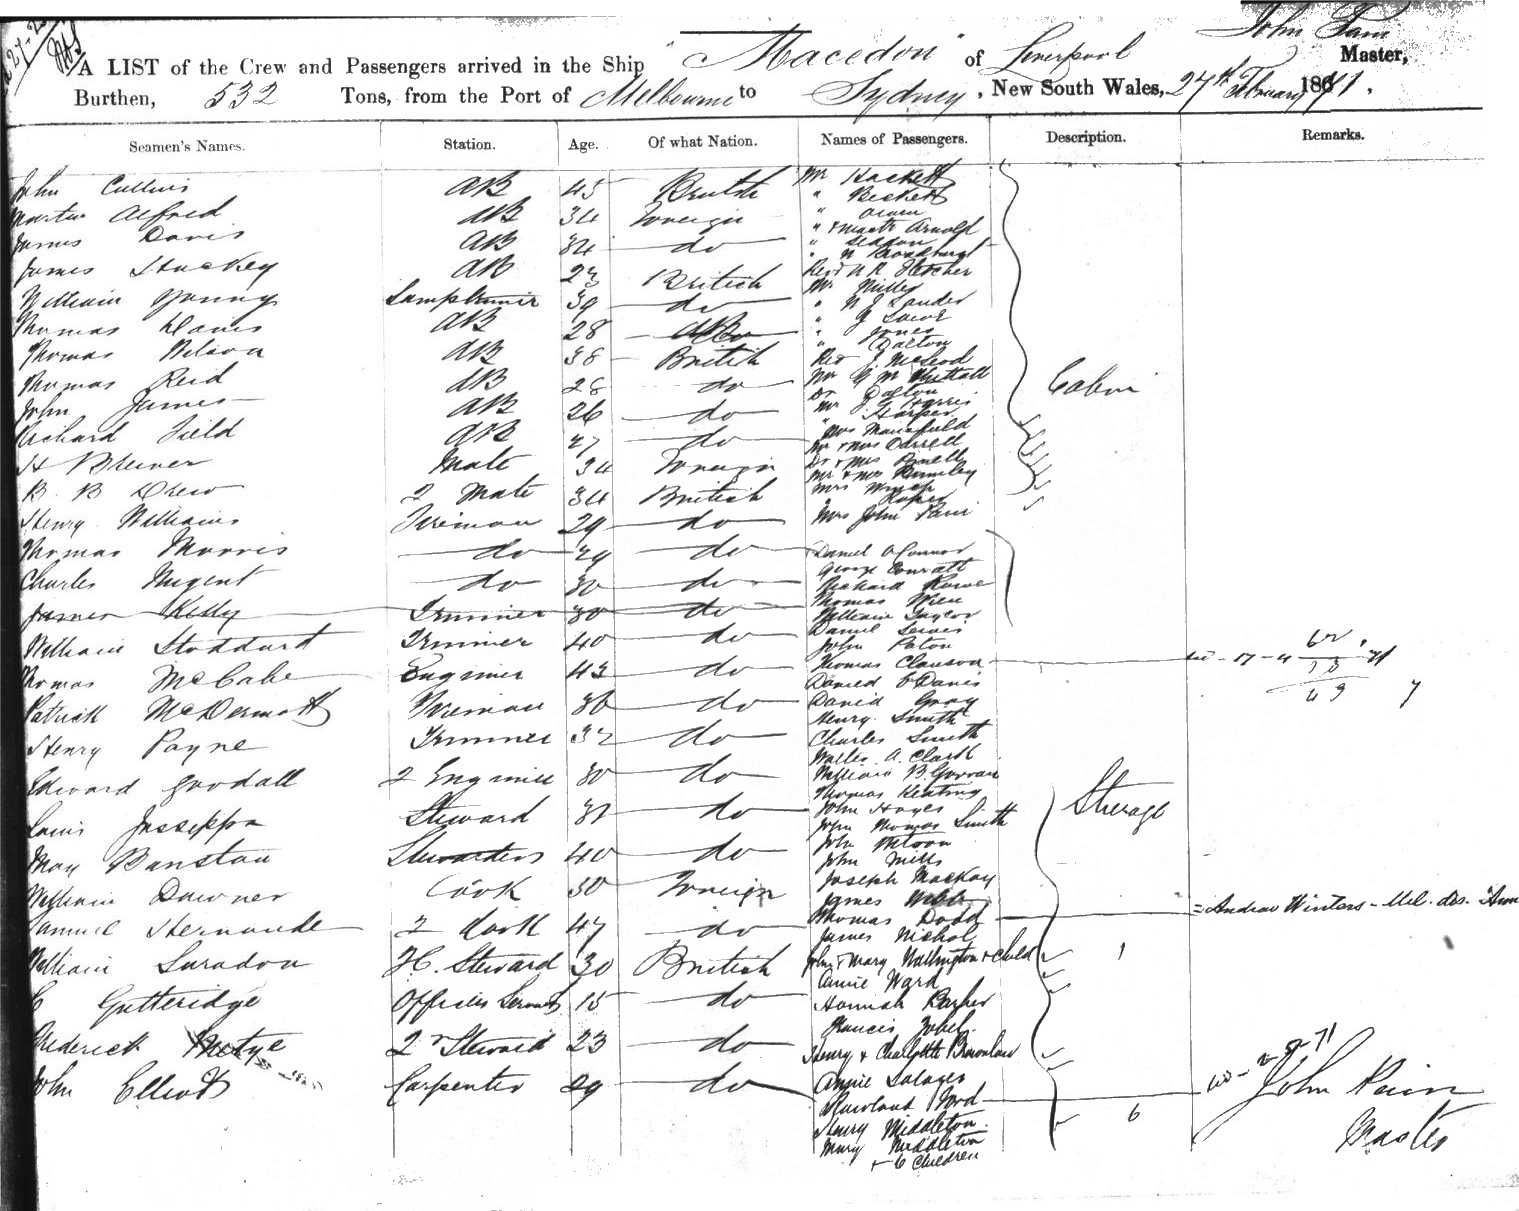 John Pain
A LIST of the Crew and Passengers arrived in the Ship "Macedon" of Liverpool Master,
Burthen, 532 Tons, from the Port of Melbourne to Sydney, New South Wales, 27th February 1871.
Seamen's Names. Station. Age. Of what Nation. Names of Passengers. Description. Remarks.
John Cullins AB 45 British
Martin Alfred AB 34 Foreign
James Davis AB 34 do
James Stuckey AB 23 British
William Young Lamptrimer 39 do
Thomas Davis AB 28
Thomas Wilson AB 38 British
Thomas Reid AB 28 do
John James AB 26 do
Richard Field AB 27 do
H Brewer Mate 34 Foreign
B. B Drew 2 Mate 34 British
Henry Williams Fireman 29 do
Thomas Morris do 29 do
Charles Nugent do 30 do
James Kelly Trimmer 30 do
William Stoddart Trimmer 40 do
Thomas McCabe Engineer 43 do
Patrick McDermott Fireman 36 do
Henry Payne Trimmer 32 do
Edward Goodall 2 Engineer 30 do
Louis Jusseppa Steward 31 do
May Banstau Stewardess 40 do
William Downer Cook 30 Foreign
Samuel Hernande 2 Cook 47 do
William Suradon F.C. Steward 30 British
C Gutteridge Officers Servant 15 do
Frederick Motye 2nd Steward 23 do
John Elliott Carpenter 29 do
Mr Hackett
" Beckett
" Owen
" & Mastr Arnold
" Seddon
Revd W R Fletcher
Mr Miller
" W J Lander
" Jones
" Dalton
Revd J McLeod
Dr Dalton
Mr J G Harris
" Harper
Mrs Mansfield
Mr & Mrs Darrell
Mr & Mrs Bumley
Mrs John Pain
Cabin
Daniel O'Connor
George Conratt
Richard Rowe
Thomas Wren
William Taylor
Daniel Lewis
John Paton
Thomas Clauson
Daniel O Davis
David Gray
Henry Smith
Charles Smith
Walter A. Clark
William B. Gorran
Thomas Keating
John Hayes
John Thomas Smith
John Mills
Joseph Mackay
James Webb
Thomas Dodd
James Nichol
John & Mary Wallington & child 1
Annie Ward
Hannah Barber
Francis Zobel
Henry & Charlotte Brownlow
Annie Salages
Rowland Ford
Henry Middleton
Mary Middleton
+ 6 Children 6
Steerage
= Andrew Winters - Mel. des. "Ann
John Pain
Master